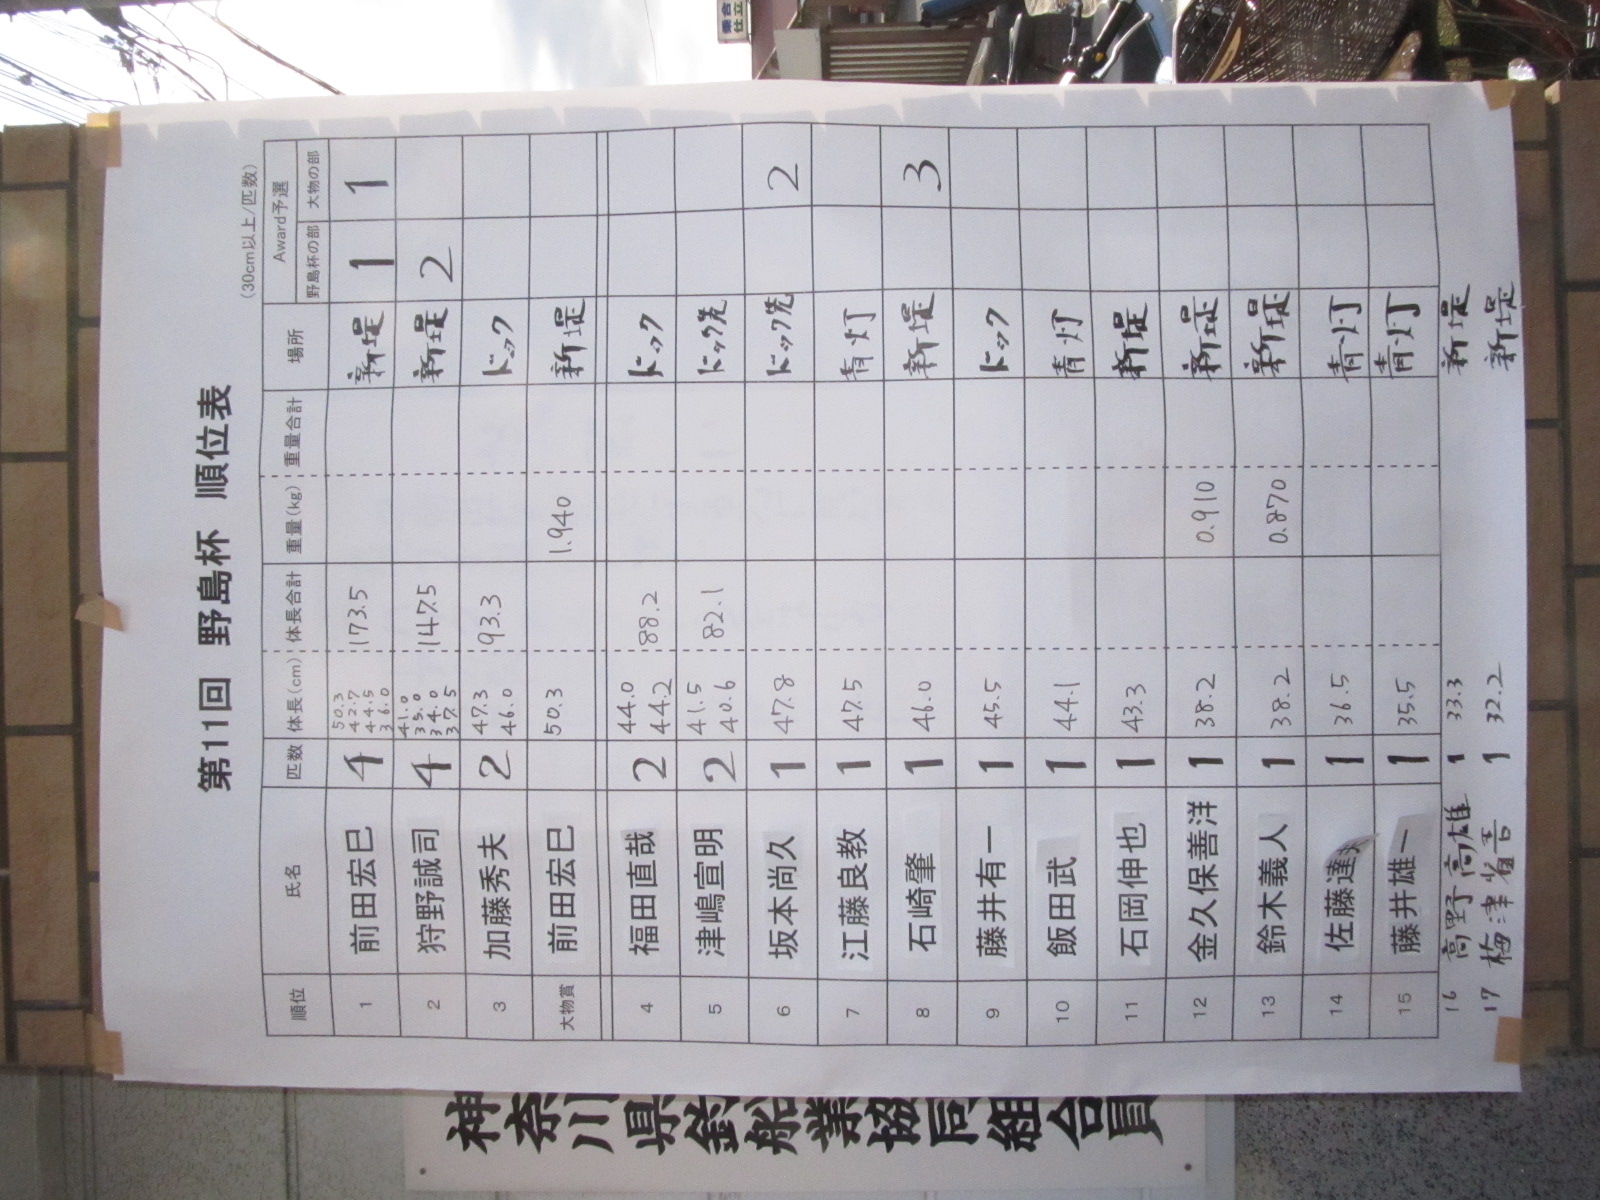 第11回 野島杯 順位表
(30cm以上/匹数)
順位 氏名 匹数 体長(cm) 体長合計 重量(kg) 重量合計 場所 Award予選
野島杯の部 大物の部
1 前田宏巳 4 50.3 42.7 44.5 36.0 173.5 新堤 1 1
2 狩野誠司 4 41.0 35.0 34.0 37.5 147.5 新堤 2
3 加藤秀夫 2 47.3 46.0 93.3 ドック
大物賞 前田宏巳 50.3 1.940 新堤
4 福田直哉 2 44.0 44.2 88.2 ドック
5 津嶋宣明 2 41.5 40.6 82.1 ドック先
6 坂本尚久 1 47.8 ドック先 2
7 江藤良教 1 47.5 青灯
8 石崎肇 1 46.0 新堤 3
9 藤井有一 1 45.5 ドック
10 飯田武 1 44.1 青灯
11 石岡伸也 1 43.3 新堤
12 金久保善洋 1 38.2 0.910 新堤
13 鈴木義人 1 38.2 0.870 新堤
14 佐藤達 1 36.5 青灯
15 藤井雄一 1 35.5 青灯
16 高野高雄 1 33.3 新堤
17 梅津省吾 1 32.2 新堤
神奈川県釣船業協同組合員